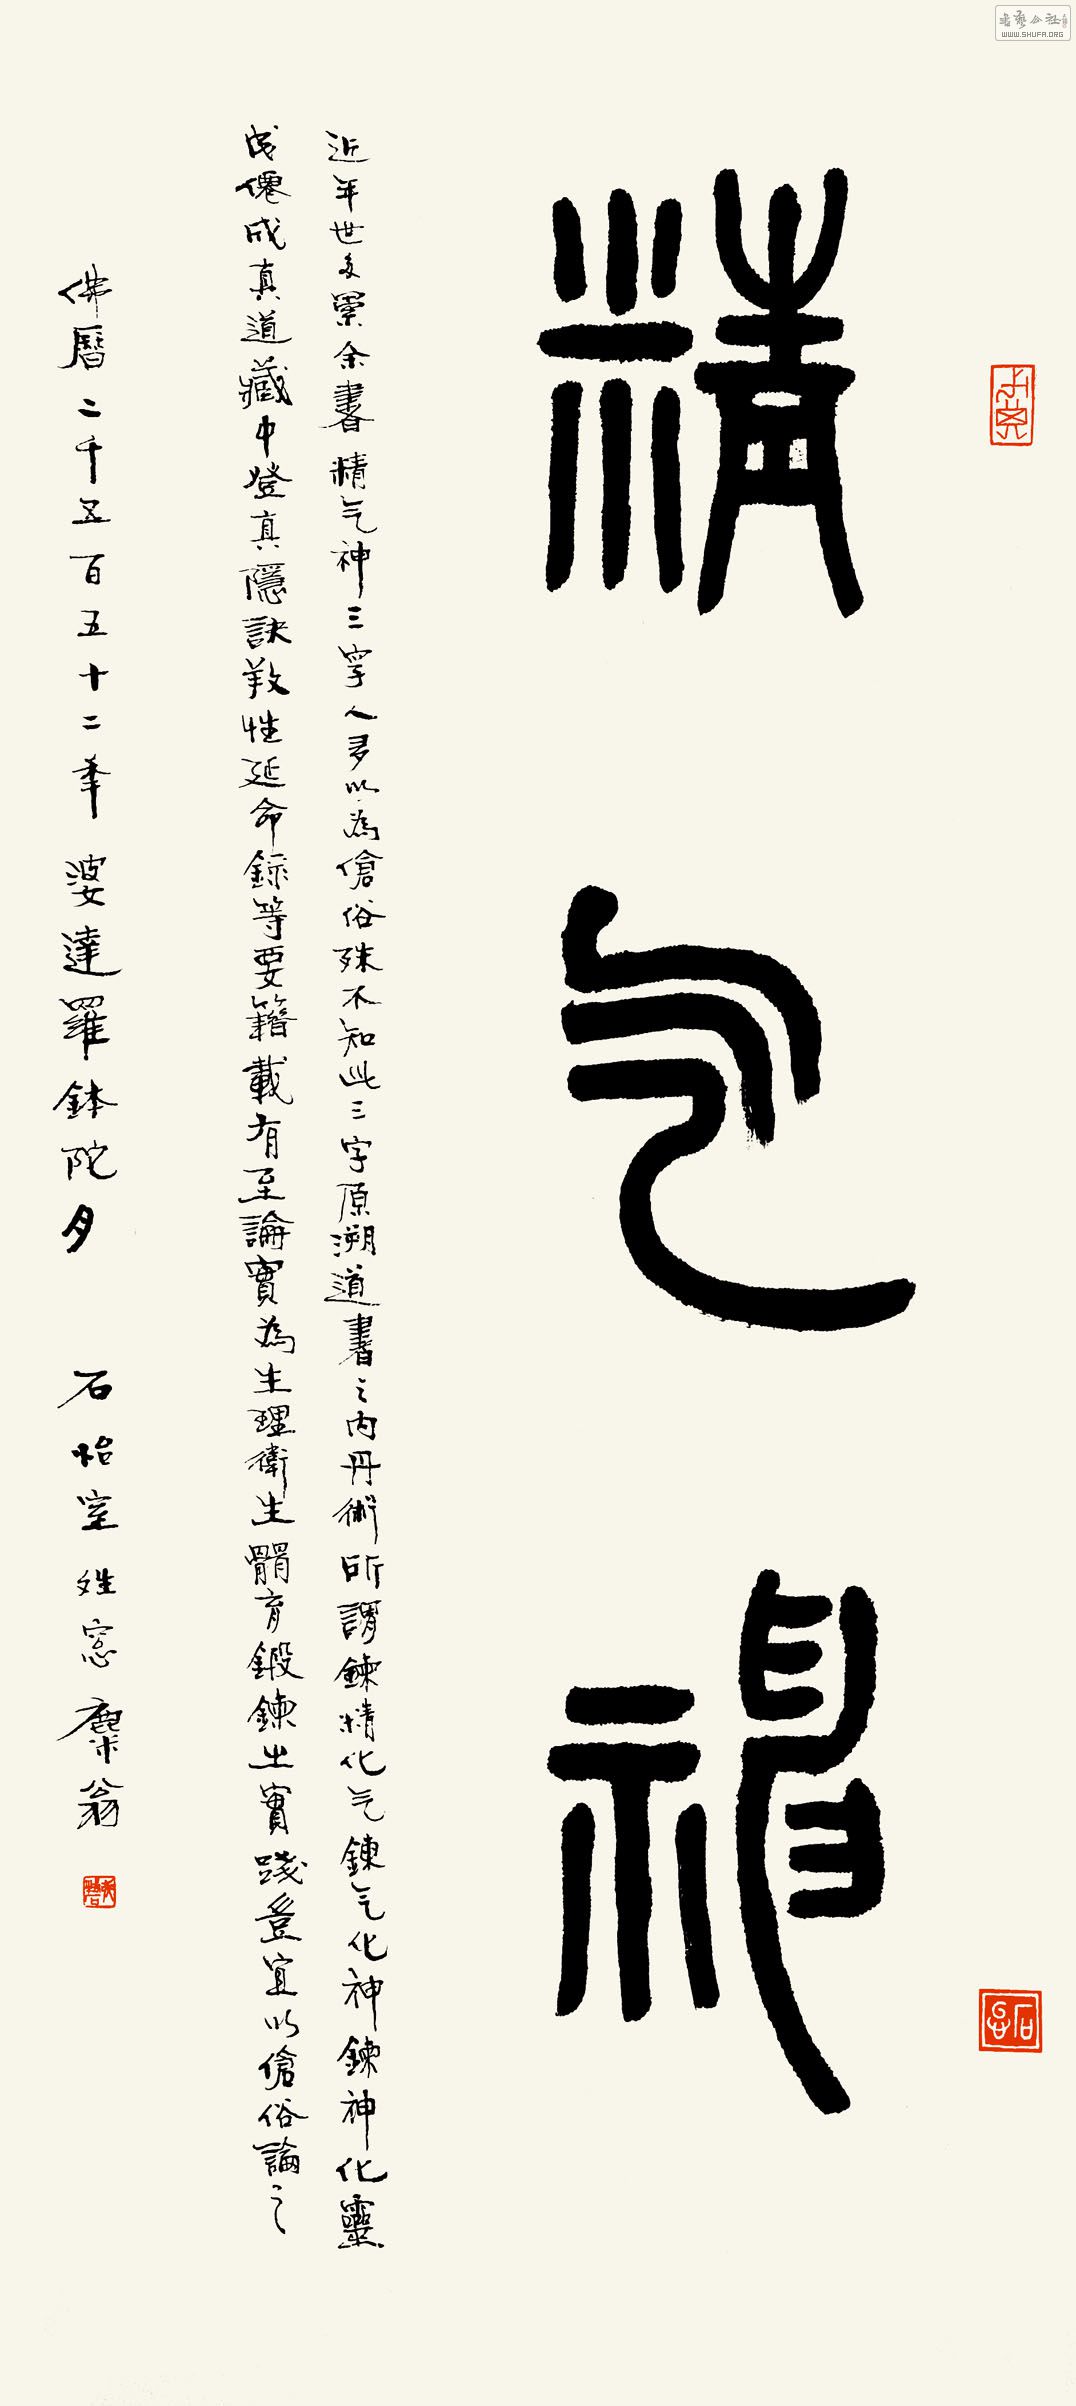 精气神
近年世多累余書精气神三字人多以為傖俗殊不知此三字原溯道書之内丹術所謂鍊精化气鍊气化神鍊神化靈
成僊成真道藏中登真隱訣養性延命錄等要籍載有至論實為生理衛生體育鍛鍊之實踐豈宜以傖俗論之
佛曆二千五百五十二年 婆達羅鉢陀月 石怡室 姓窓麋翁
WWW.SHUFA.ORG